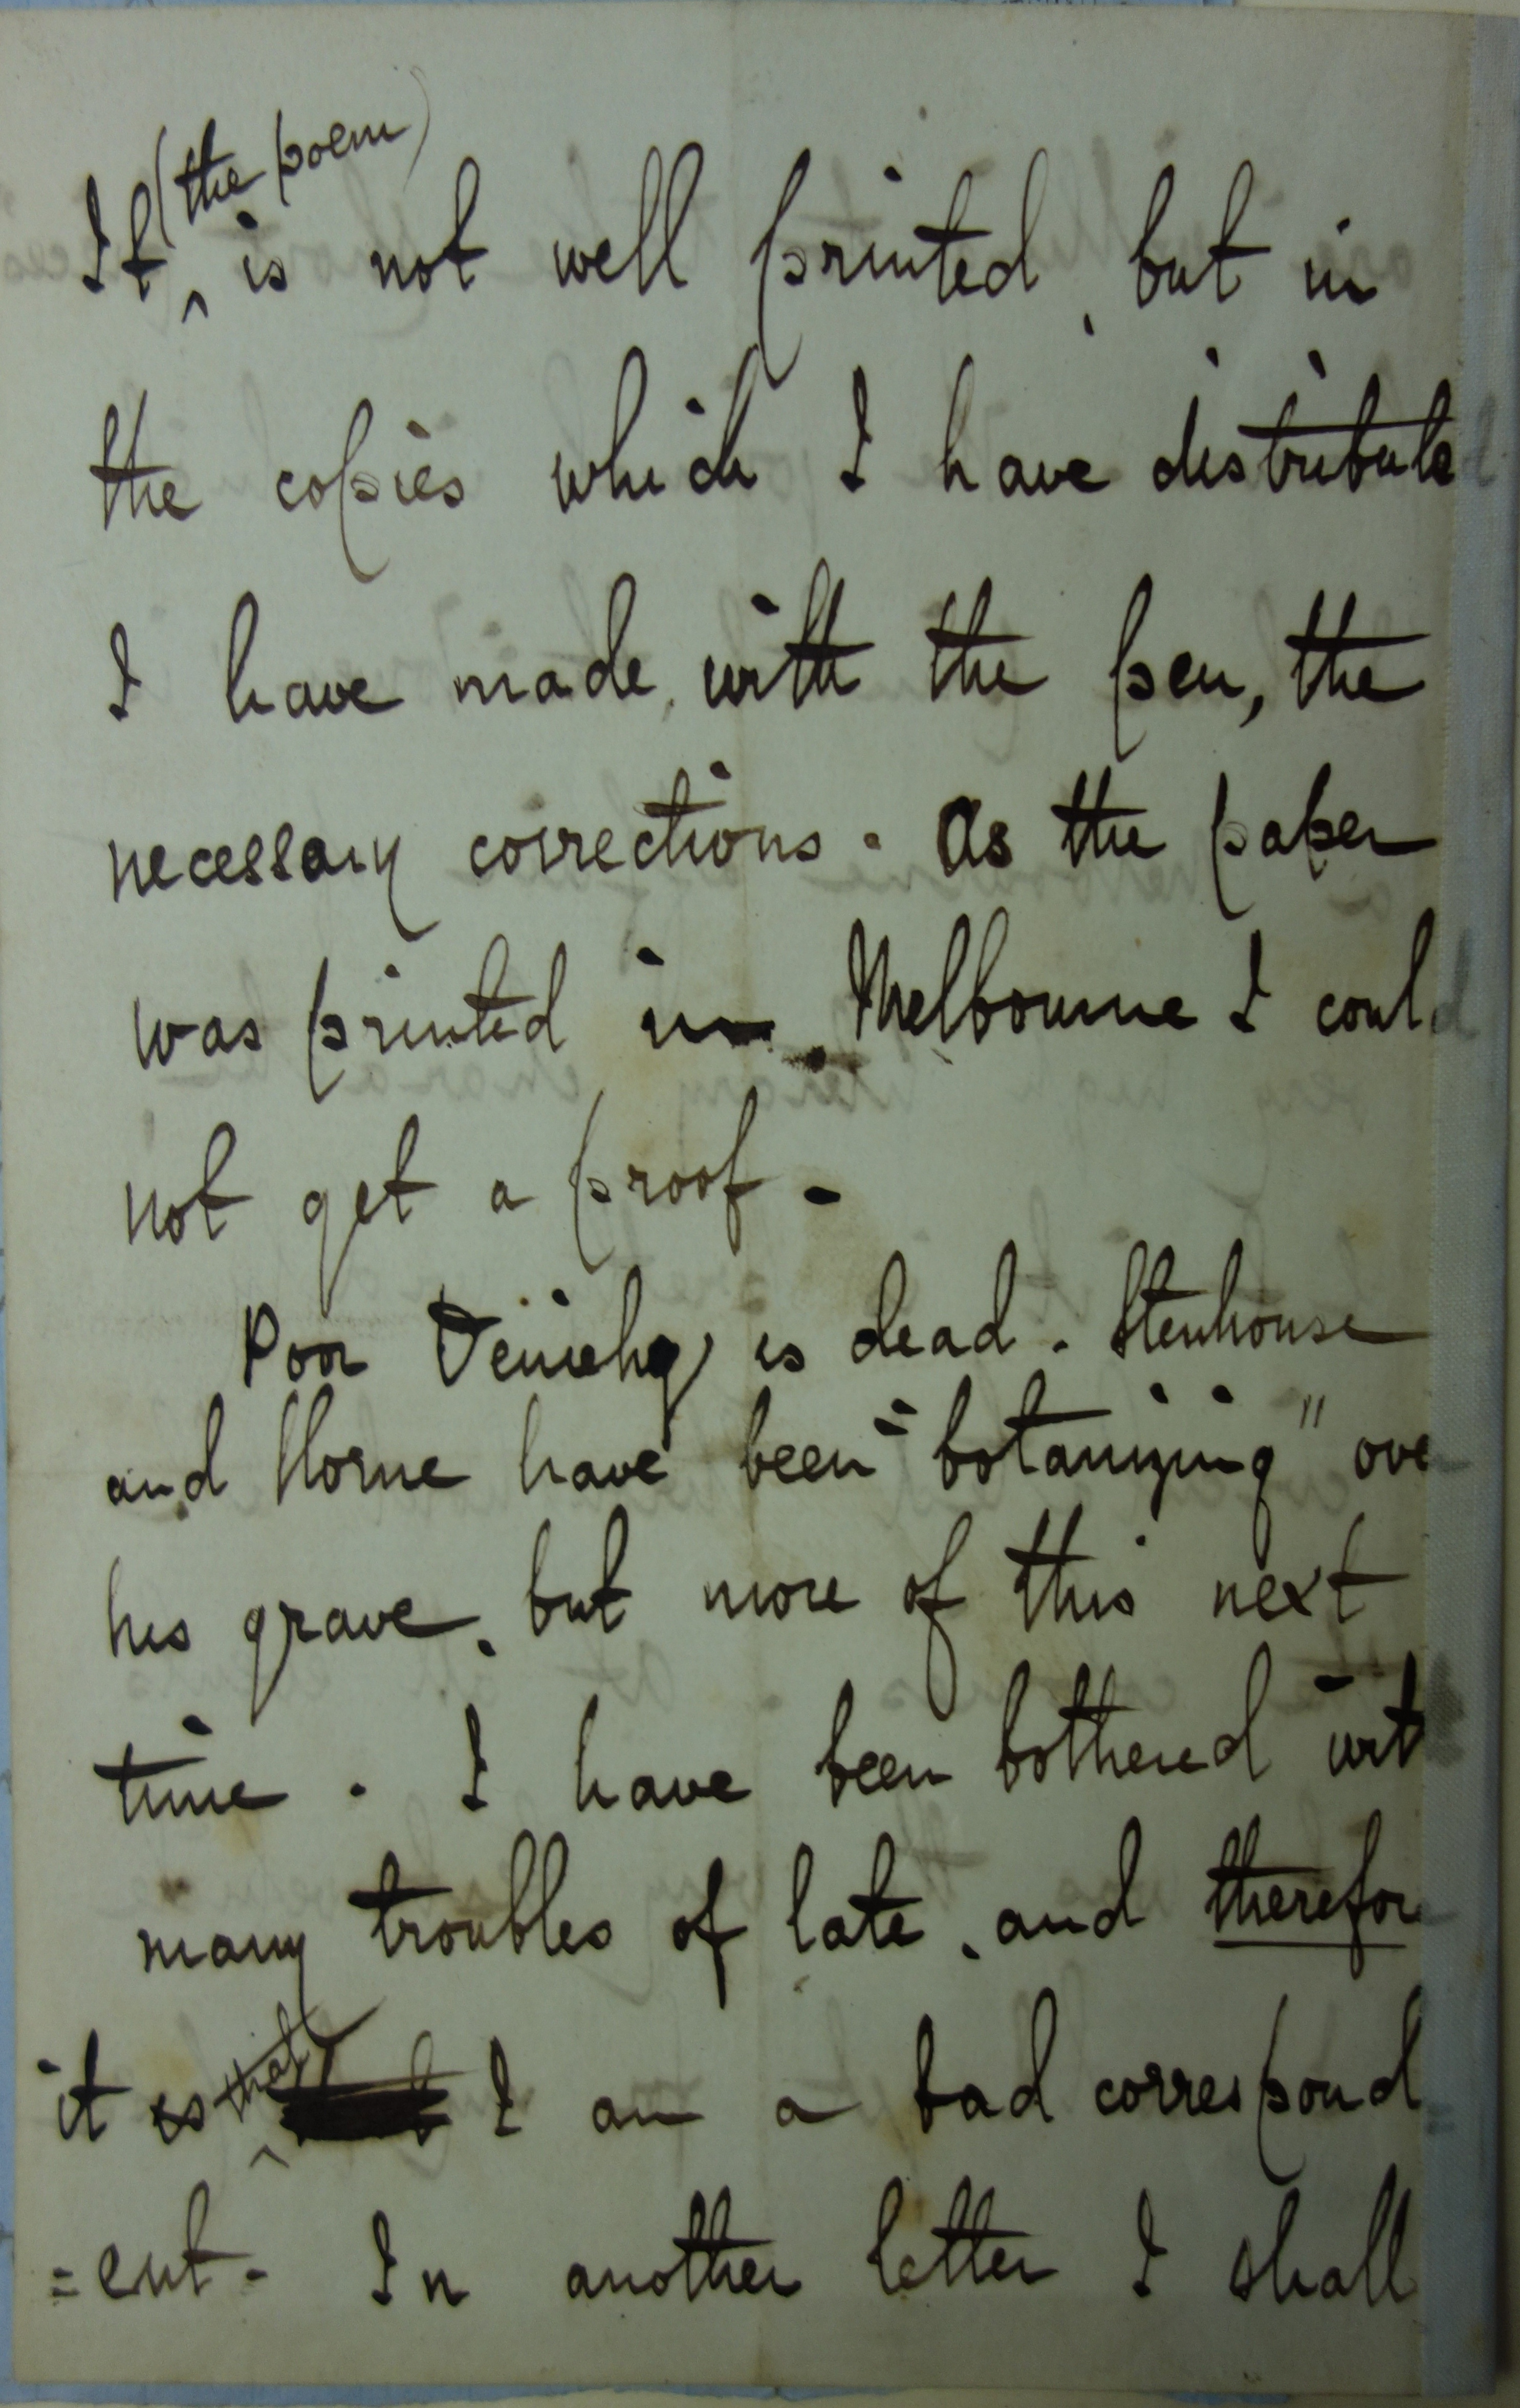 It ^(the poem) is not well printed, but in
the copies which I have distribute
I have made, with the pen, the
necessary corrections. As the paper
was printed in Melbourne I could
not get a proof.
Poor Deniehy is dead. Stenhouse
and Horne have been "botanizing" ove
his grave, but more of this next
time. I have been bothered wit
many troubles of late, and therefor
it is ^that I am a bad correspond
=ent. In another letter I shall